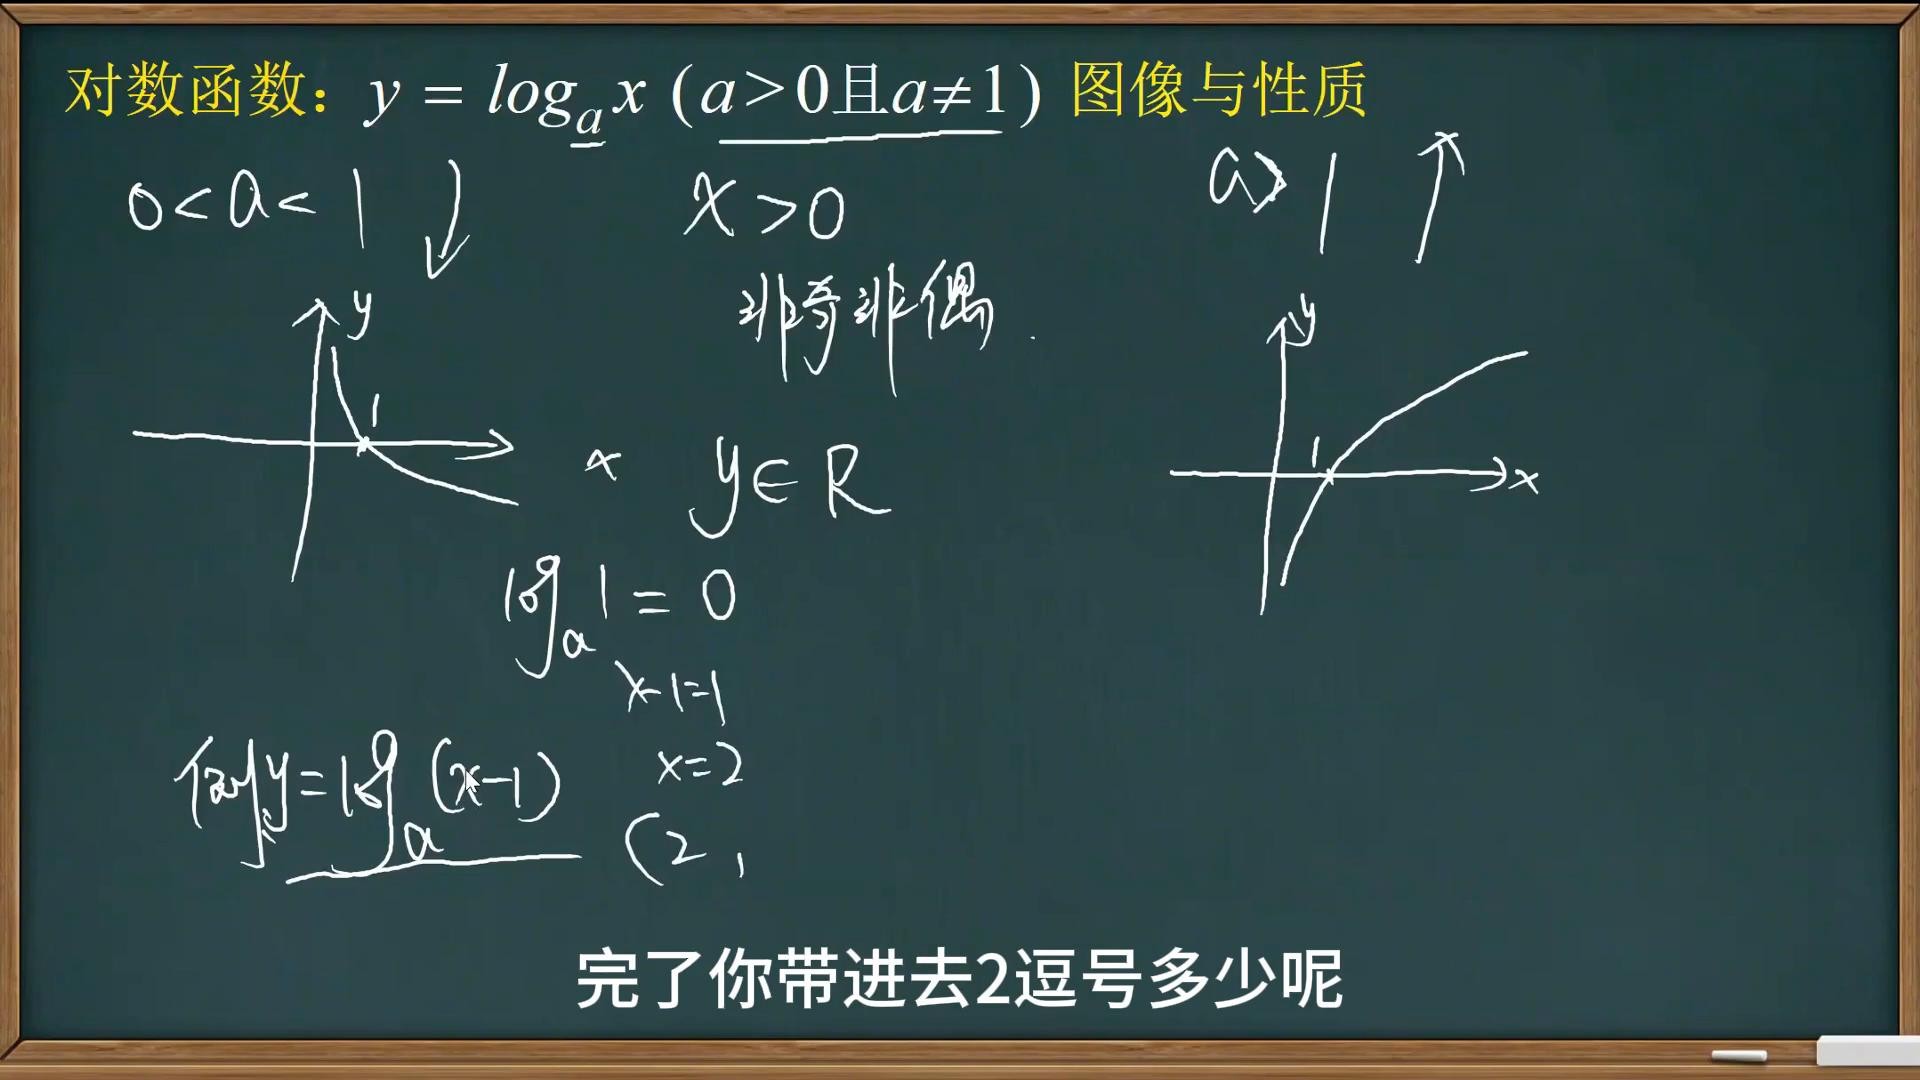 对数函数：y = logₐx (a>0且a≠1) 图像与性质
0<a<1
x>0
a>1
非奇非偶.
y
1
x
y∈R
y
1
x
logₐ1=0
x-1=1
y=logₐ(x-1)
x=2
(2,
完了你带进去2逗号多少呢